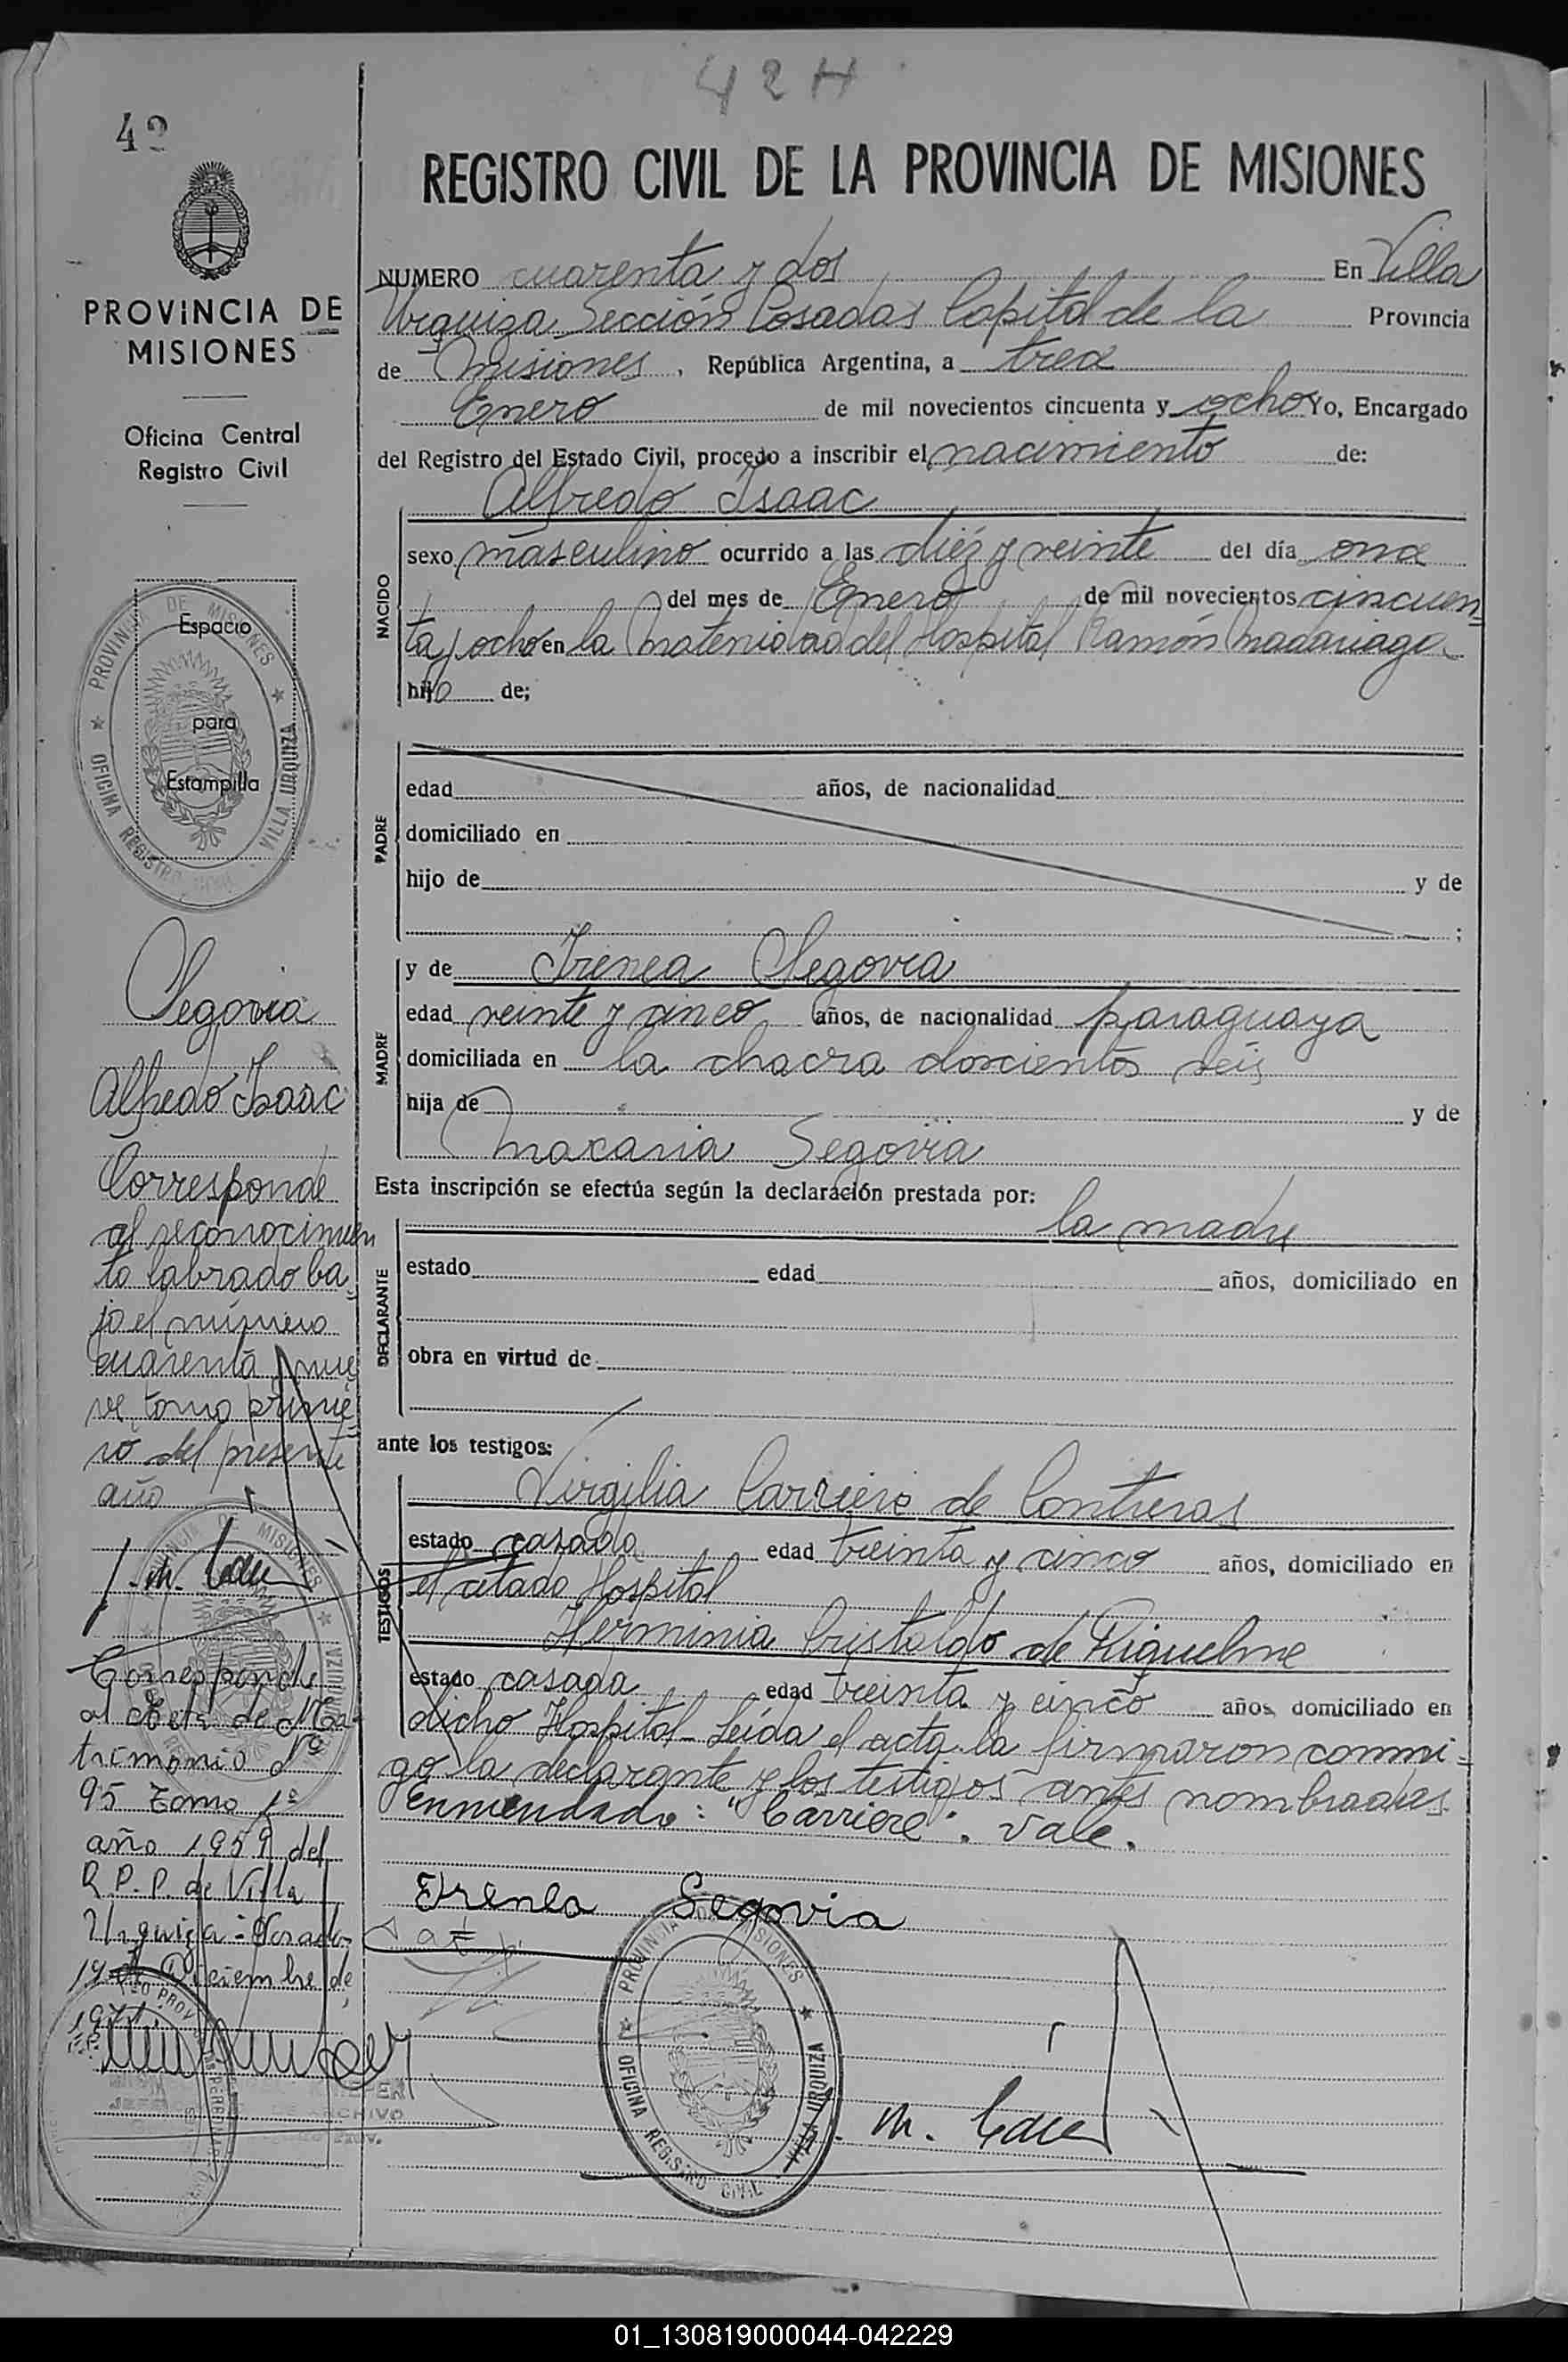 42H
42
PROVINCIA DE
MISIONES
Oficina Central
Registro Civil
PROVINCIA DE MISIONES
OFICINA REGISTRO CIVIL VILLA URQUIZA
Espacio
para
Estampilla
Segovia
Alfredo Isaac
Corresponde
al reconocimien
to labrado ba=
jo el número
cuarenta y nue
ve, tomo prime=
ro del presente
año
Corresponde
al Acta de Ma-
trimonio Nº
95 Tomo 1º
año 1959 del
R.P.P. de Villa
Urquiza - Posadas
19 de Diciembre de
1971.
REGISTRO CIVIL DE LA PROVINCIA DE MISIONES
NUMERO cuarenta y dos En Villa
Urquiza Sección Posadas Capital de la Provincia
de Misiones, República Argentina, a trece
Enero de mil novecientos cincuenta y ocho Yo, Encargado
del Registro del Estado Civil, procedo a inscribir el nacimiento de:
NACIDO
Alfredo Isaac
sexo masculino ocurrido a las diéz y veinte del día once
del mes de Enero de mil novecientos cincuen=
ta y ocho en la Maternidad del Hospital Ramón Madariaga
hijo de;
PADRE
edad años, de nacionalidad
domiciliado en
hijo de y de
;
MADRE
y de Irenea Segovia
edad veinte y cinco años, de nacionalidad paraguaya
domiciliada en la chacra doscientos seis
hija de y de
Macaria Segovia
Esta inscripción se efectúa según la declaración prestada por:
DECLARANTE
la madre
estado edad años, domiciliado en
obra en virtud de
ante los testigos:
TESTIGOS
Virgilia Carriere de Contreras
estado casada edad treinta y cinco años, domiciliado en
el citado Hospital
Herminia Cristaldo de Riquelme
estado casada edad treinta y cinco años, domiciliado en
dicho Hospital - Leída el acta la firmaron conmi=
go la declarante y los testigos antes nombradas
Enmendado: "Carriere". Vale.
Irenea Segovia
PROVINCIA DE MISIONES
OFICINA REGISTRO CIVIL VILLA URQUIZA
01_130819000044-042229